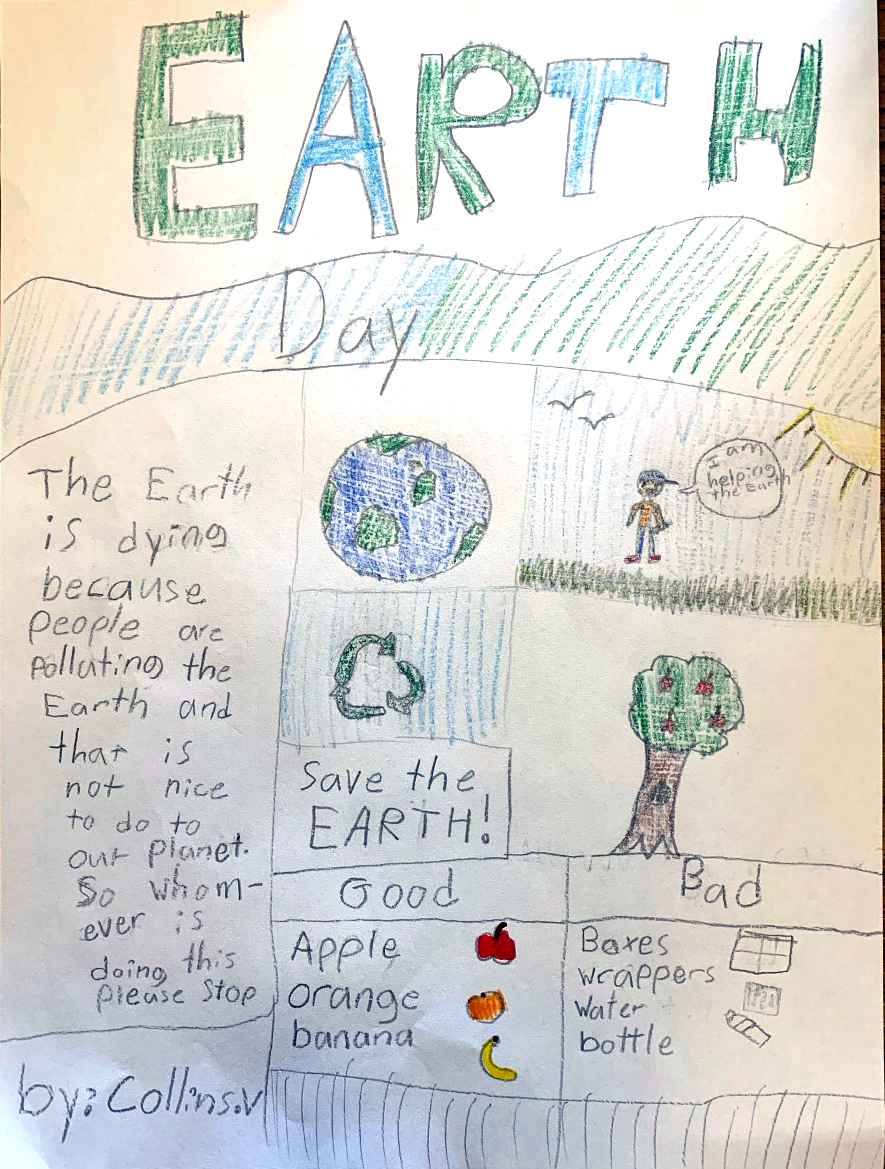 EARTH
Day
The Earth
is dying
because
people are
polluting the
Earth and
that is
not nice
to do to
our planet.
So whom-
ever is
doing this
please stop
by: Collins.v
I am
helping
the Earth
Save the
EARTH!
Good
Apple
orange
banana
Bad
Boxes
wrappers
water
bottle